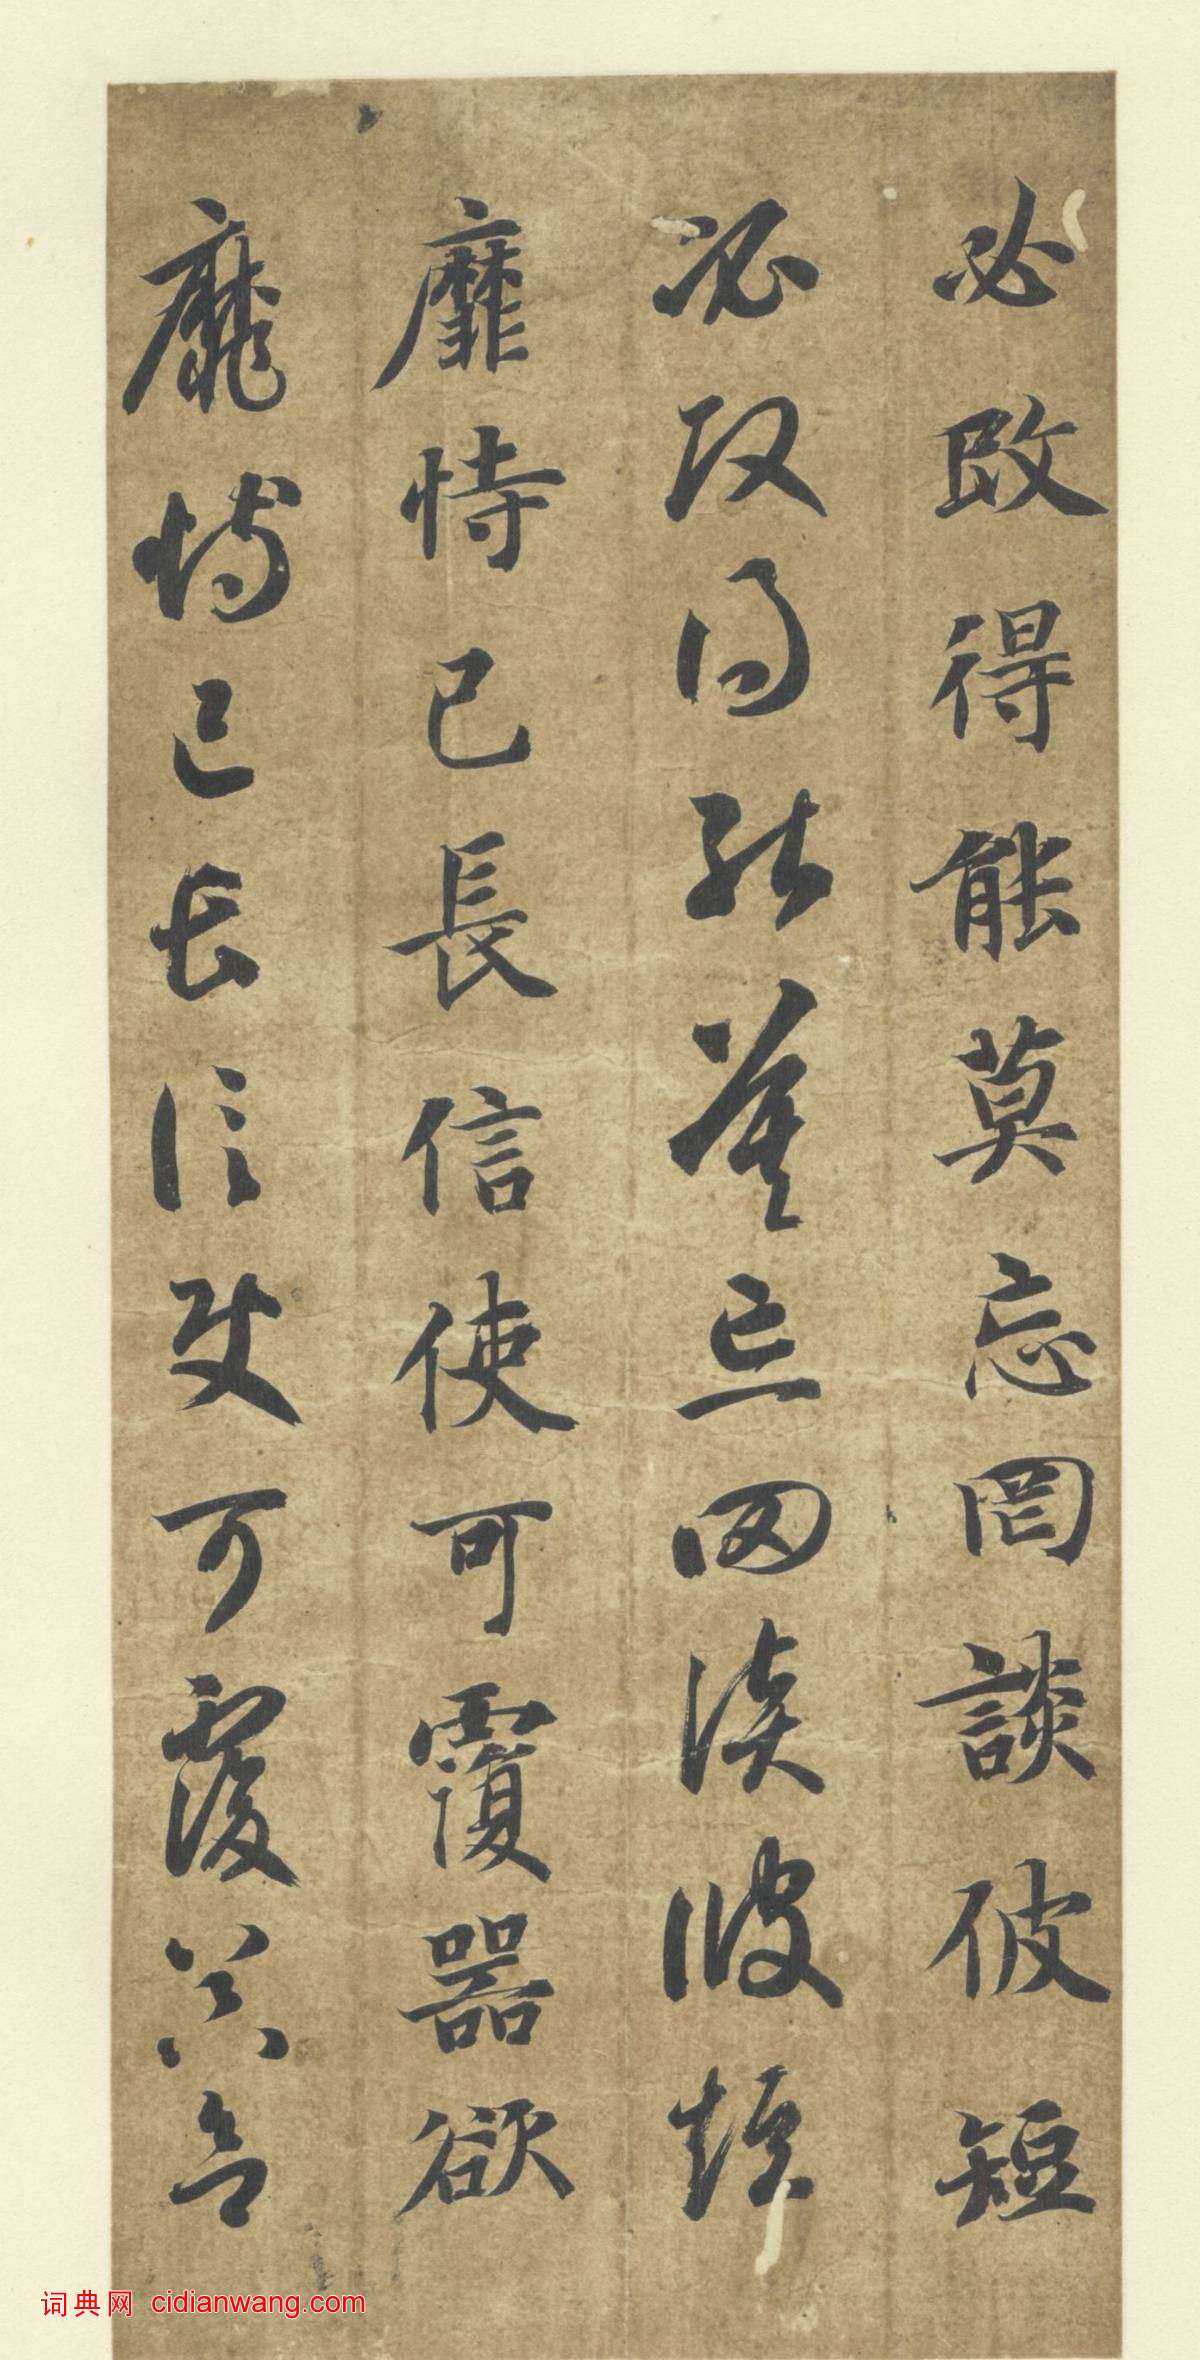 必改得能莫忘罔談彼短
必改得能莫忘罔談彼短
靡恃己長信使可覆器欲
靡恃己長信使可覆器欲
词典网 cidianwang.com